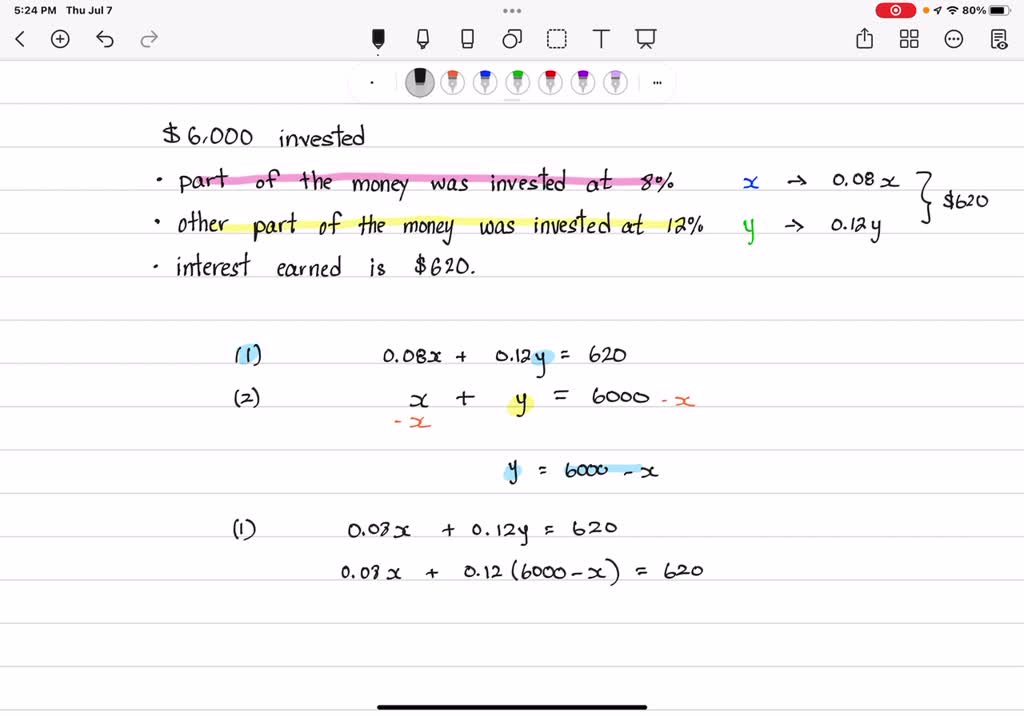 5:24 PM Thu Jul 7
80%
T
$6,000 invested
• part of the money was invested at 8% x → 0.08x
• other part of the money was invested at 12% y → 0.12y
} $620
• interest earned is $620.
(1) 0.08x + 0.12y = 620
(2) x + y = 6000 - x
- x
y = 6000 - x
(1) 0.08x + 0.12y = 620
0.08x + 0.12(6000-x) = 620